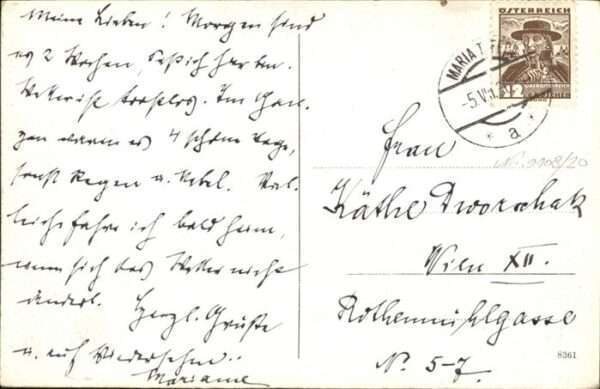 Meine Lieben! Morgen sind
es 2 Wochen, daß ich hier bin.
Wetter ist trostlos. Im Gan-
zen waren es 4 schöne Tage,
sonst Regen u. Nebel. Viel-
leicht fahre ich bald heim,
wenn sich das Wetter nicht
ändert. Herzl. Grüße
u. auf Wiedersehn
Marianne
ÖSTERREICH
12
MARIA
a
Frau
Käthe Dworschak
Wien XII.
Rothenmühlgasse
Nº 5-7.
8361